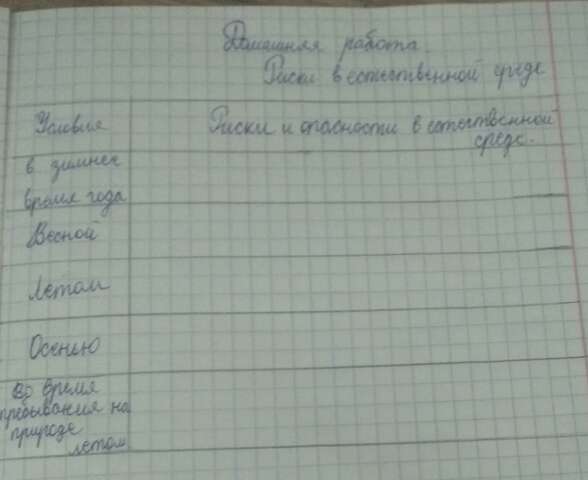 Домашняя работа.
Риски в естественной среде
Условия
Риски и опасности в естественной
среде.
в зимнее
время года
Весной
Летом
Осенью
Во время
пребывания на
природе
летом